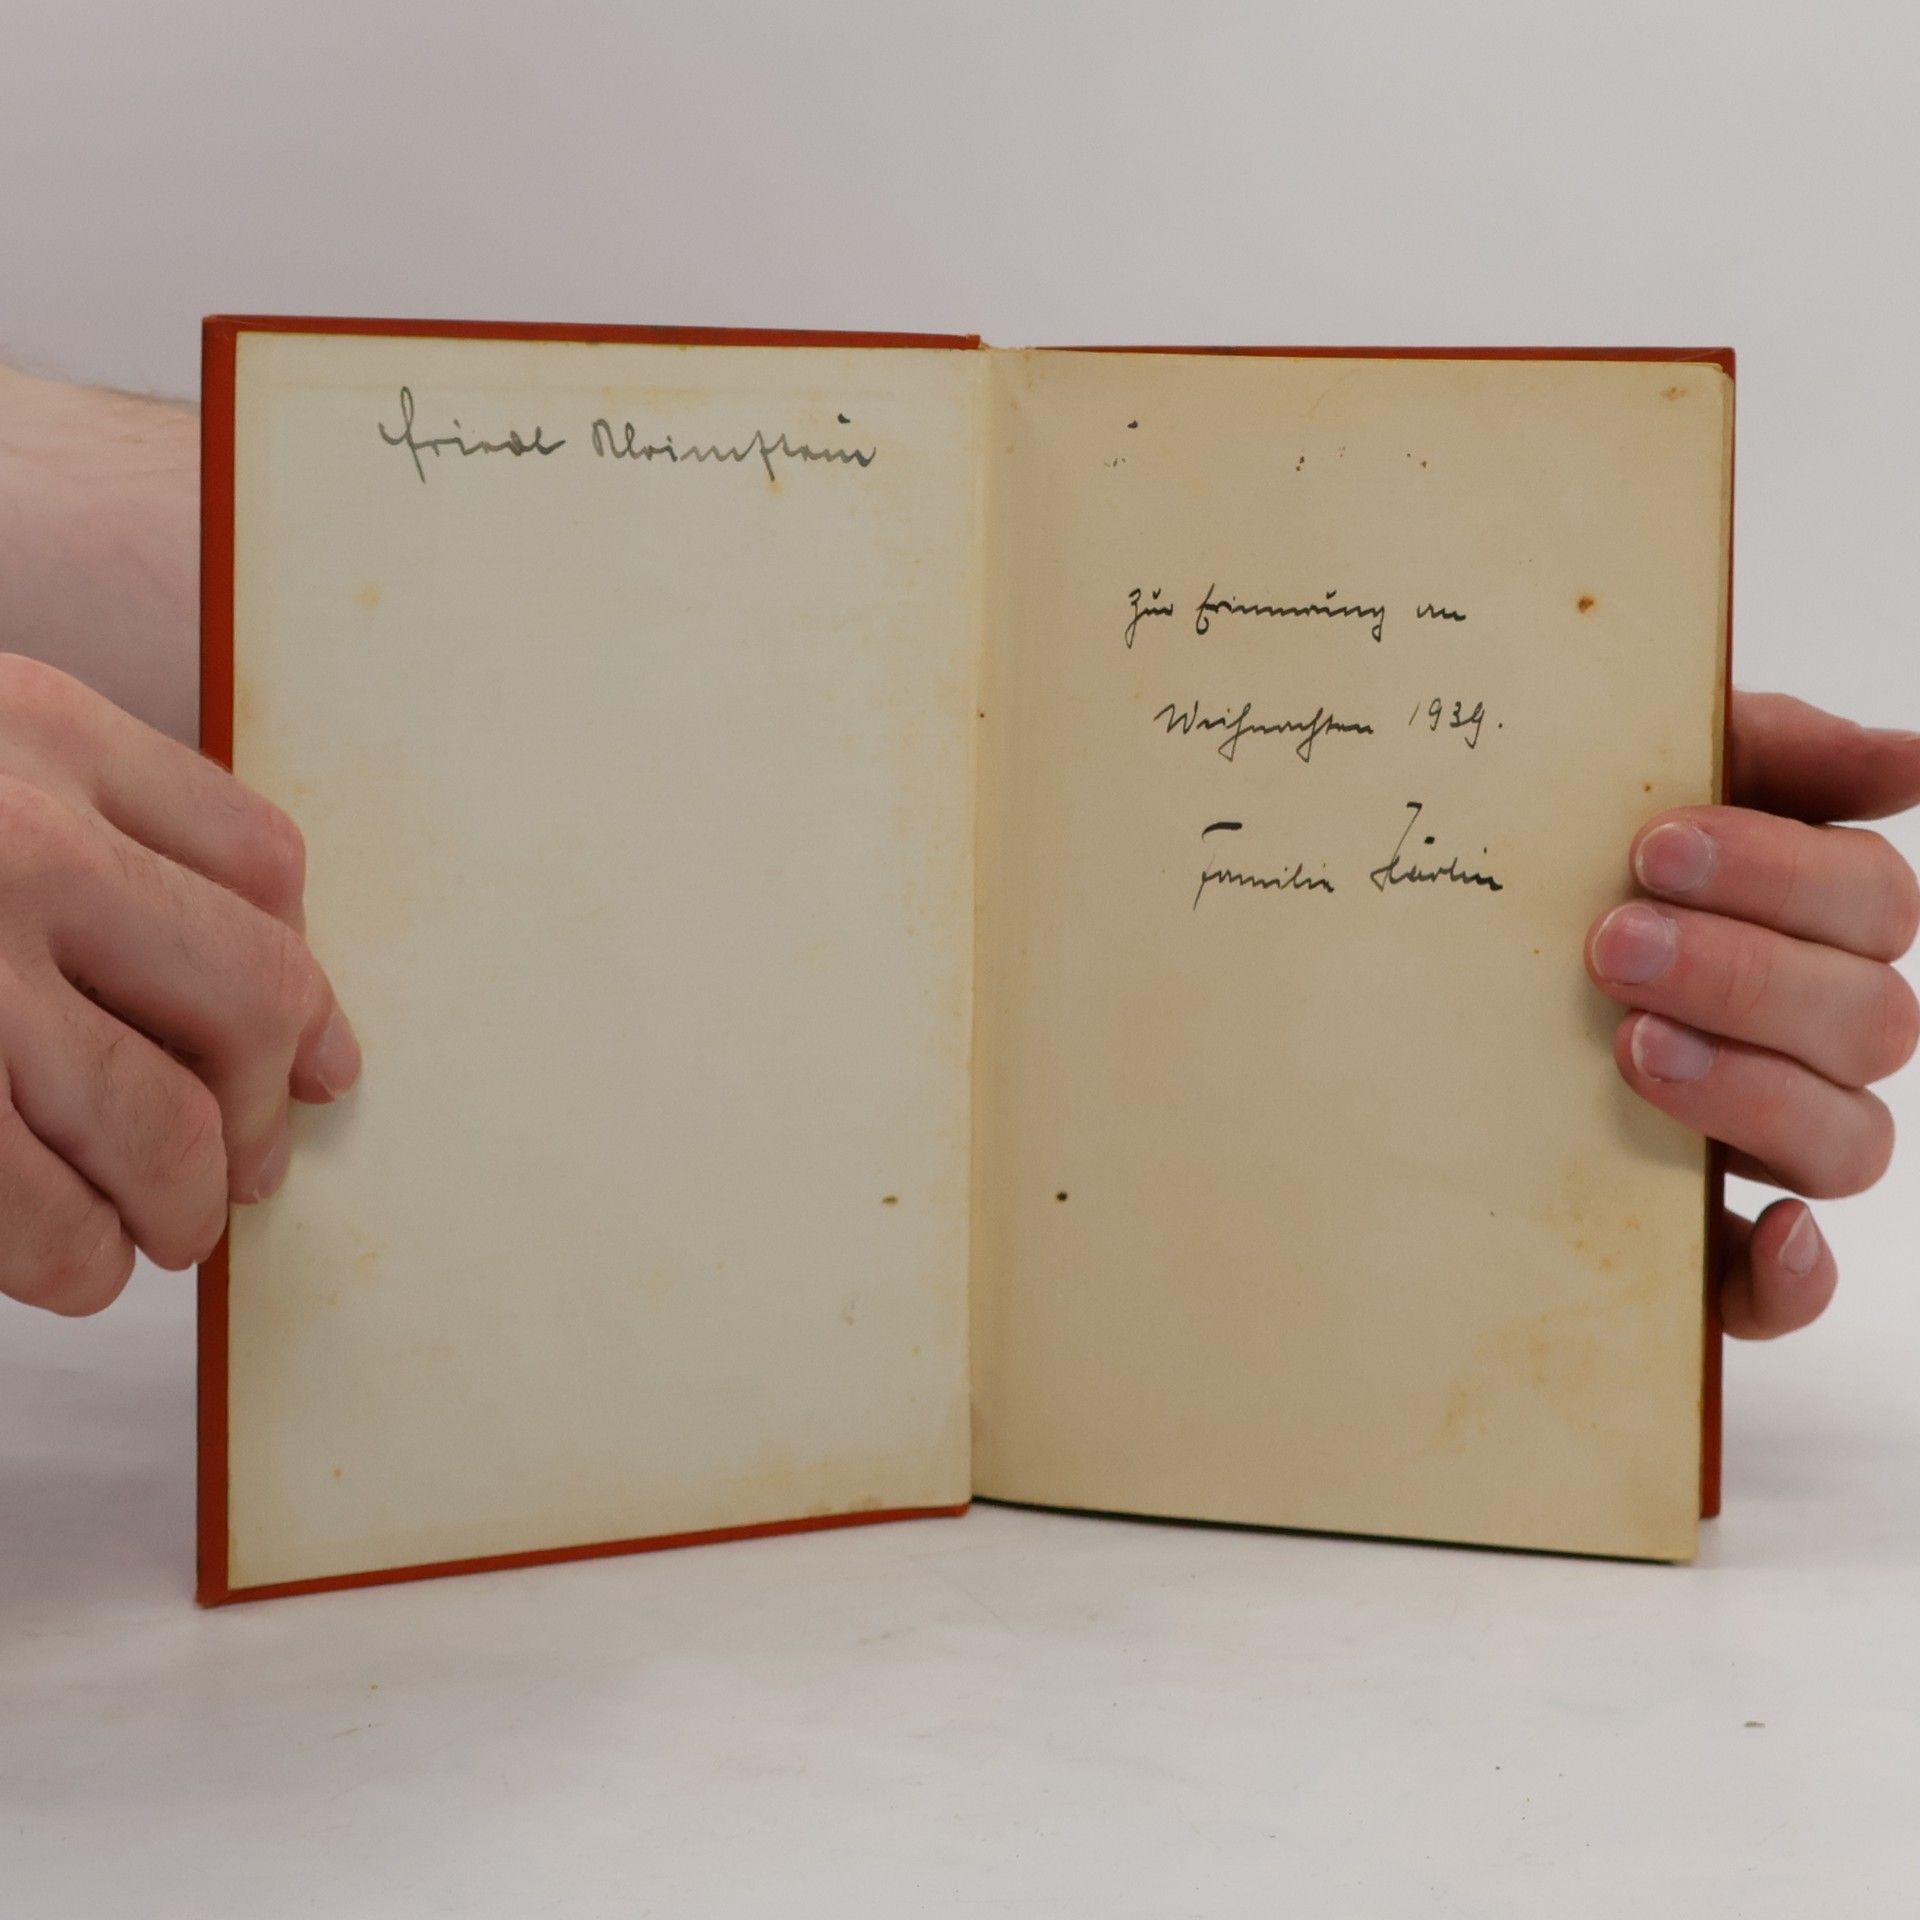 Friedl
Zur Erinnerung an
Weihnachten 1939.
Familie